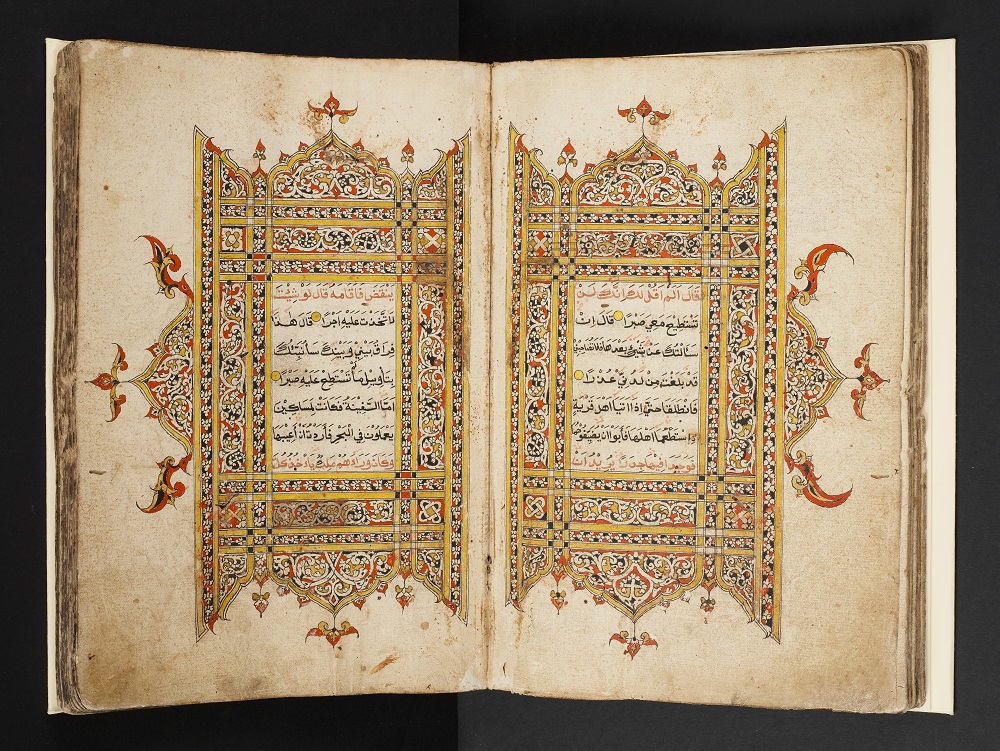 قَالَ اَلَمْ اَقُلْ لَكَ اِنَّكَ لَنْ
تَسْتَطِيْعَ مَعِيَ صَبْرًا قَالَ اِنْ
سَاَلْتُكَ عَنْ شَيْءٍ بَعْدَهَا فَلَا تُصَاحِبْنِيْ
قَدْ بَلَغْتَ مِنْ لَدُنِّيْ عُذْرًا
فَانْطَلَقَا حَتَّى اِذَا اَتَيَا اَهْلَ قَرْيَةٍ
ۨاسْتَطْعَمَا اَهْلَهَا فَاَبَوْا اَنْ يُضَيِّفُوْهُمَا
فَوَجَدَا فِيْهَا جِدَارًا يُرِيْدُ اَنْ
يَنْقَضَّ فَاَقَامَهُ قَالَ لَوْ شِئْتَ
لَتَّخَذْتَ عَلَيْهِ اَجْرًا قَالَ هٰذَا
فِرَاقُ بَيْنِيْ وَبَيْنِكَ سَاُنَبِّئُكَ
بِتَأْوِيْلِ مَا لَمْ تَسْتَطِعْ عَلَيْهِ صَبْرًا
اَمَّا السَّفِيْنَةُ فَكَانَتْ لِمَسَاكِيْنَ
يَعْمَلُوْنَ فِي الْبَحْرِ فَاَرَدْتُ اَنْ اَعِيْبَهَا
وَكَانَ وَرَاءَهُمْ مَلِكٌ يَأْخُذُ كُلَّ